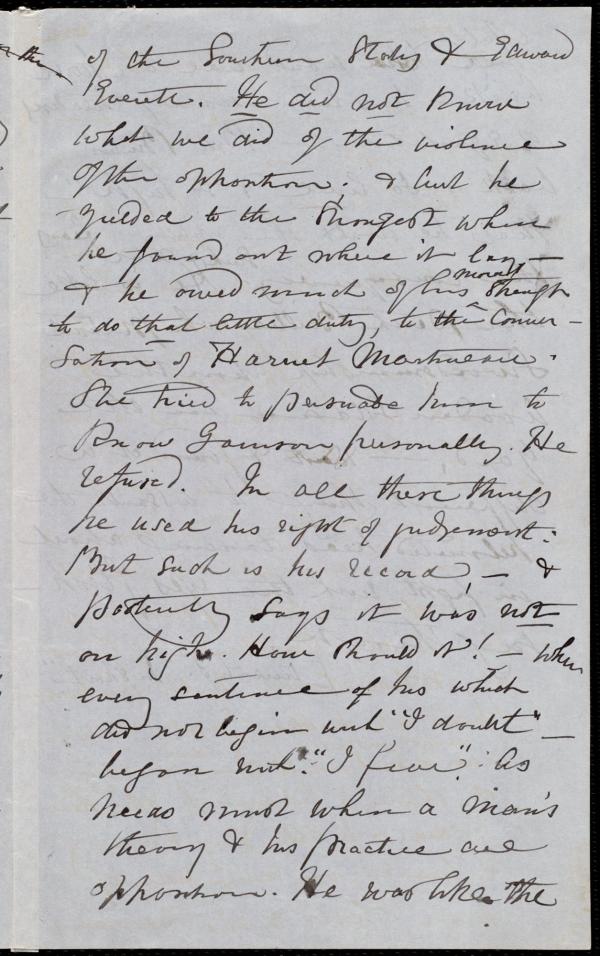 of the Southern Story & Edward
Everett. He did not know
what we did of the violence
of the opposition; & but he
yielded to the strongest when
he found out where it lay,—
& he owed much of his moral strength
to do that little duty, to the conver-
sation of Harriet Martineau.
She tried to persuade him to
know Garrison personally. He
refused. In all these things
he used his right of judgement:
But such is his record,— &
posterity says it was not
on high. How should it!— when
every sentence of his which
did not begin with "I doubt"—
began with "I fear". As
needs must when a man's
theory & his practice are
opposition. He was like the